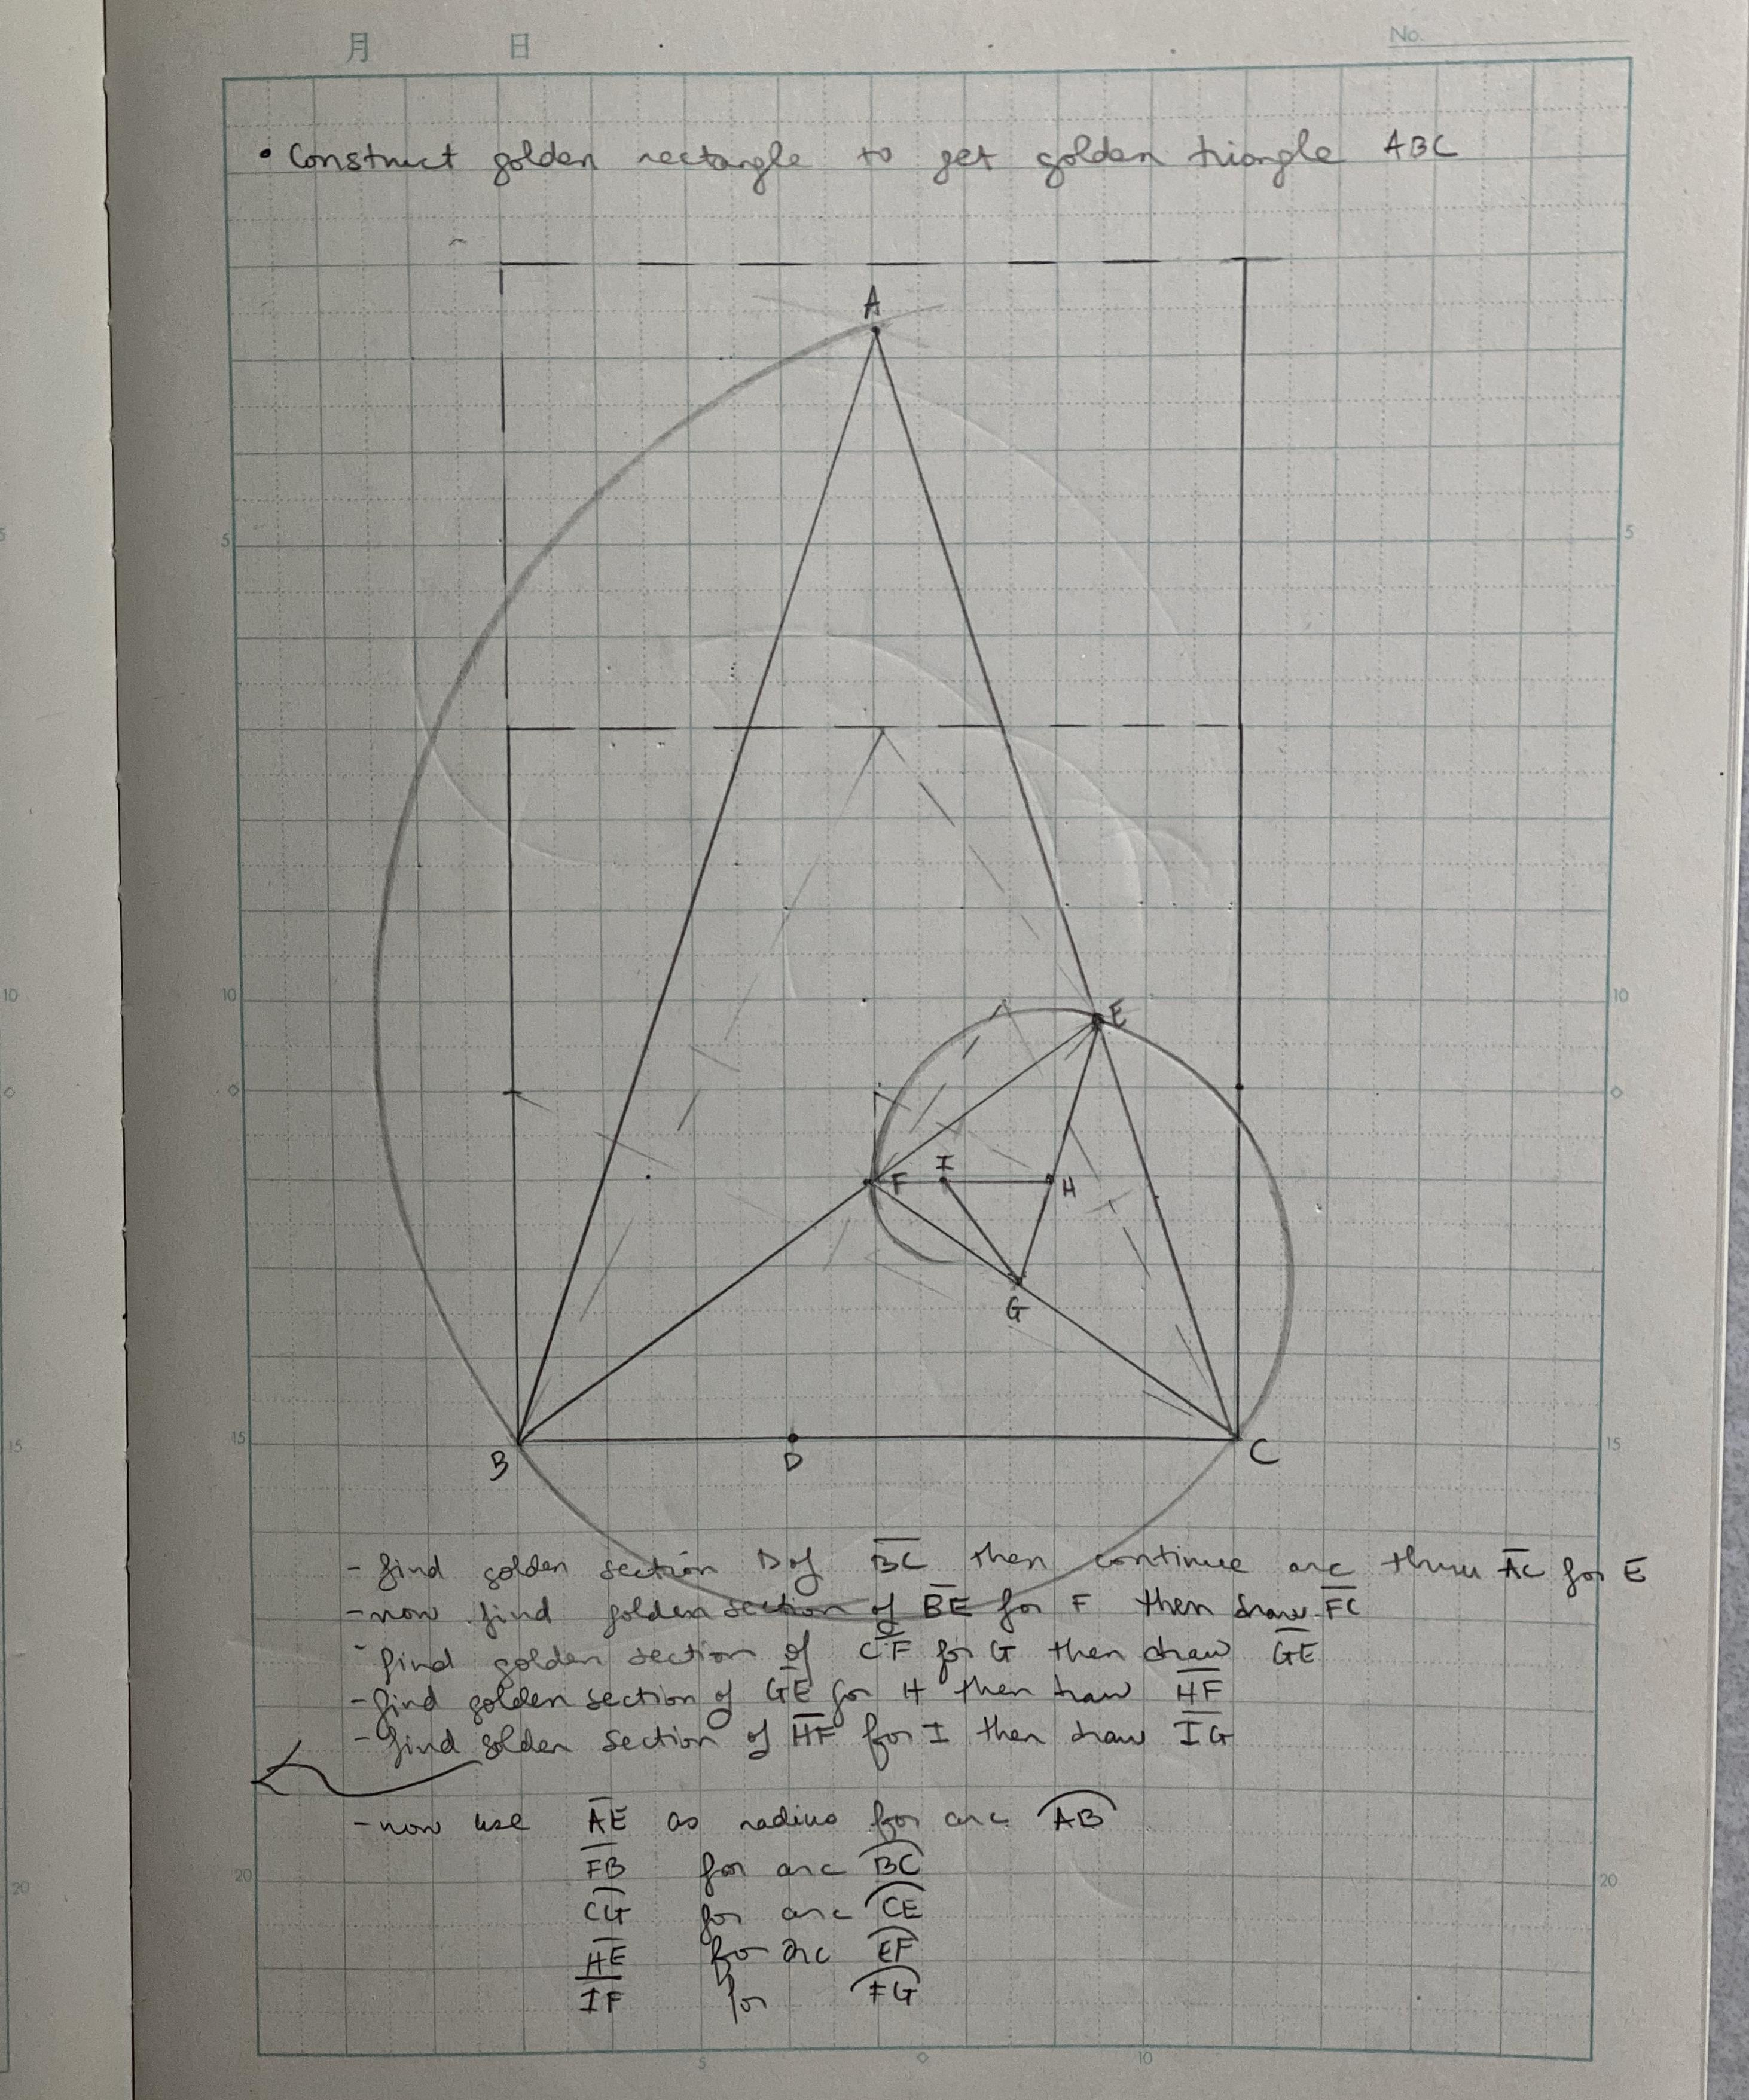 月 日 No.
• Construct golden rectangle to get golden triangle ABC
A
5 5 5
10 10 10 E
I
F H
G
15 15 15
B D C
- find golden section D of BC then continue arc thru AC for E
- now find golden section of BE for F then draw FC
- find golden section of CF for G then draw GE
- find golden section of GE for H then draw HF
- find golden section of HF for I then draw IG
- now use AE as radius for arc AB
FB for arc BC
20 20 20
CG for arc CE
HE for arc EF
IF for FG
5 10